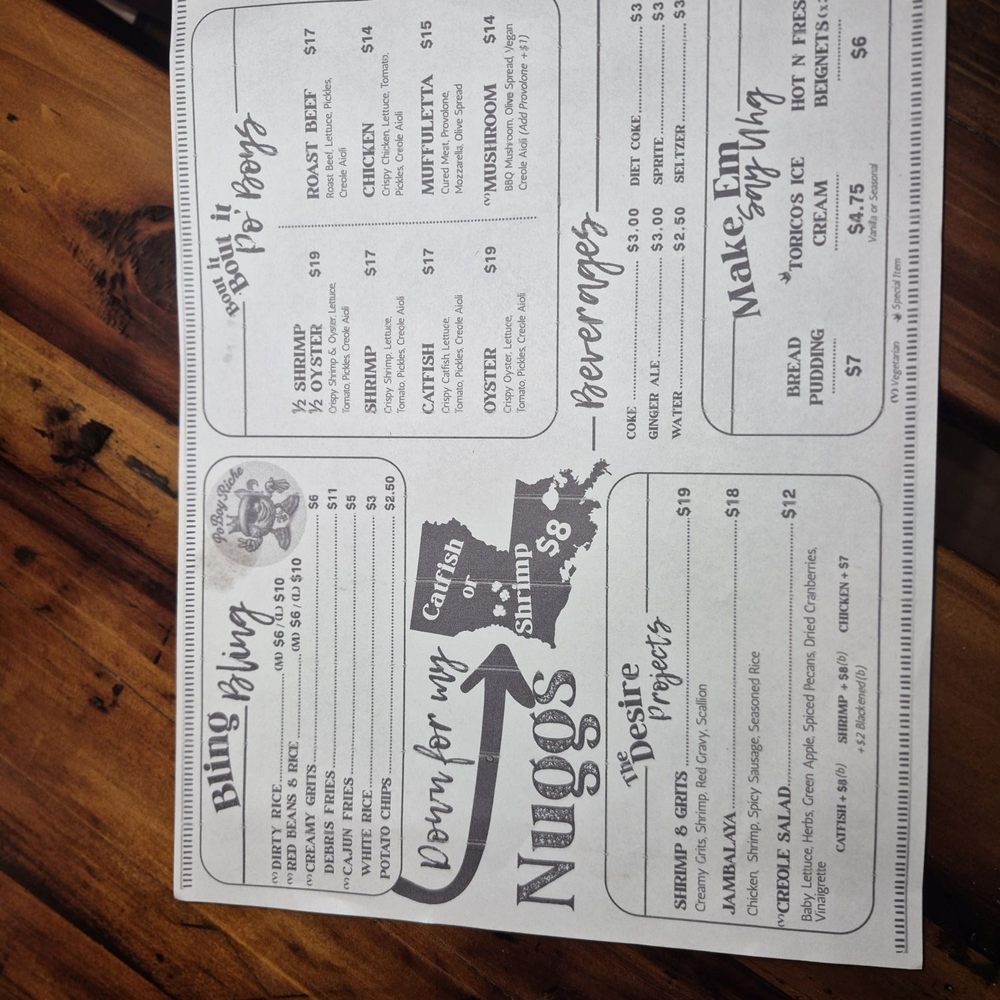 Bling
Bling
Po Boy Riche
(V) DIRTY RICE (M) $6 / (L) $10
(V) RED BEANS & RICE (M) $6 / (L) $10
(V) CREAMY GRITS $6
DEBRIS FRIES $11
(V) CAJUN FRIES $5
WHITE RICE $3
POTATO CHIPS $2.50
Down for my
Nuggs
Catfish
or
Shrimp
$8
The
Desire
Projects
SHRIMP & GRITS $19
Creamy Grits, Shrimp, Red Gravy, Scallion
JAMBALAYA $18
Chicken, Shrimp, Spicy Sausage, Seasoned Rice
(V) CREOLE SALAD $12
Baby Lettuce, Herbs, Green Apple, Spiced Pecans, Dried Cranberries,
Vinaigrette
CATFISH + $8(b) SHRIMP + $8(b) CHICKEN + $7
+$2 Blackened(b)
Bout it
Bout it
Po' Boys
½ SHRIMP
½ OYSTER $19
Crispy Shrimp & Oyster, Lettuce,
Tomato, Pickles, Creole Aioli
SHRIMP $17
Crispy Shrimp, Lettuce,
Tomato, Pickles, Creole Aioli
CATFISH $17
Crispy Catfish, Lettuce,
Tomato, Pickles, Creole Aioli
OYSTER $19
Crispy Oyster, Lettuce,
Tomato, Pickles, Creole Aioli
ROAST BEEF $17
Roast Beef, Lettuce, Pickles,
Creole Aioli
CHICKEN $14
Crispy Chicken, Lettuce, Tomato,
Pickles, Creole Aioli
MUFFULETTA $15
Cured Meat, Provolone,
Mozzarella, Olive Spread
(V) MUSHROOM $14
BBQ Mushroom, Olive Spread, Vegan
Creole Aioli (Add Provolone +$1)
Beverages
COKE $3.00
GINGER ALE $3.00
WATER $2.50
DIET COKE $3
SPRITE $3
SELTZER $3
Make Em
Say Uhg
BREAD
PUDDING
$7
TORICOS ICE
CREAM
$4.75
Vanilla or Seasonal
HOT N FRES
BEIGNETS (x
$6
(V) Vegetarian Special Item